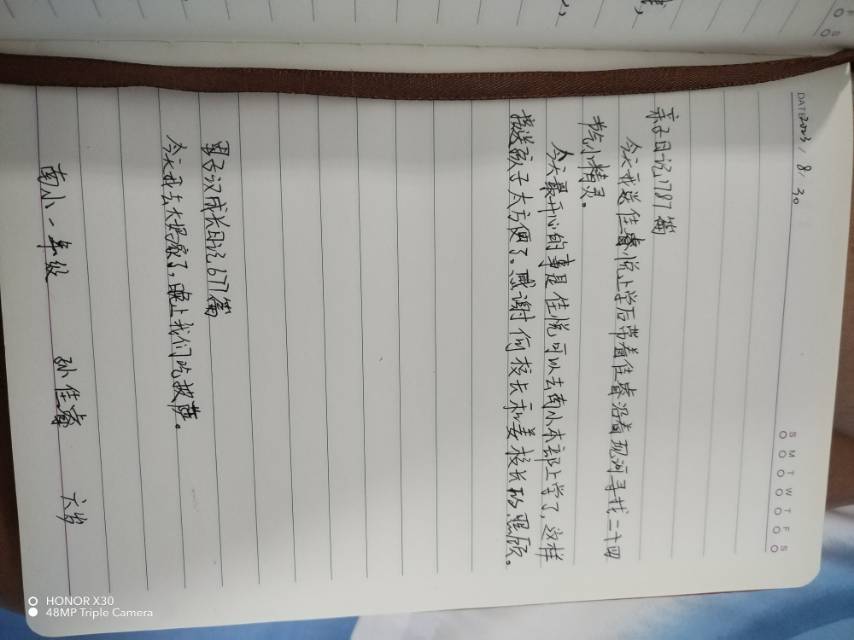 DATE 2023 / 8 / 30
S M T W T F S
亲子日记1787篇
今天我送佳悦上学后带着佳睿沿着现河寻找二十四
节气小精灵。
今天最开心的事是佳悦可以去南小本部上学了,这样
接送孩子太方便了。感谢何校长和姜校长的照顾。
男子汉成长日记671篇
今天我去大扬家了,晚上我们吃披萨。
南小一年级 孙佳睿 六岁
HONOR X30
48MP Triple Camera